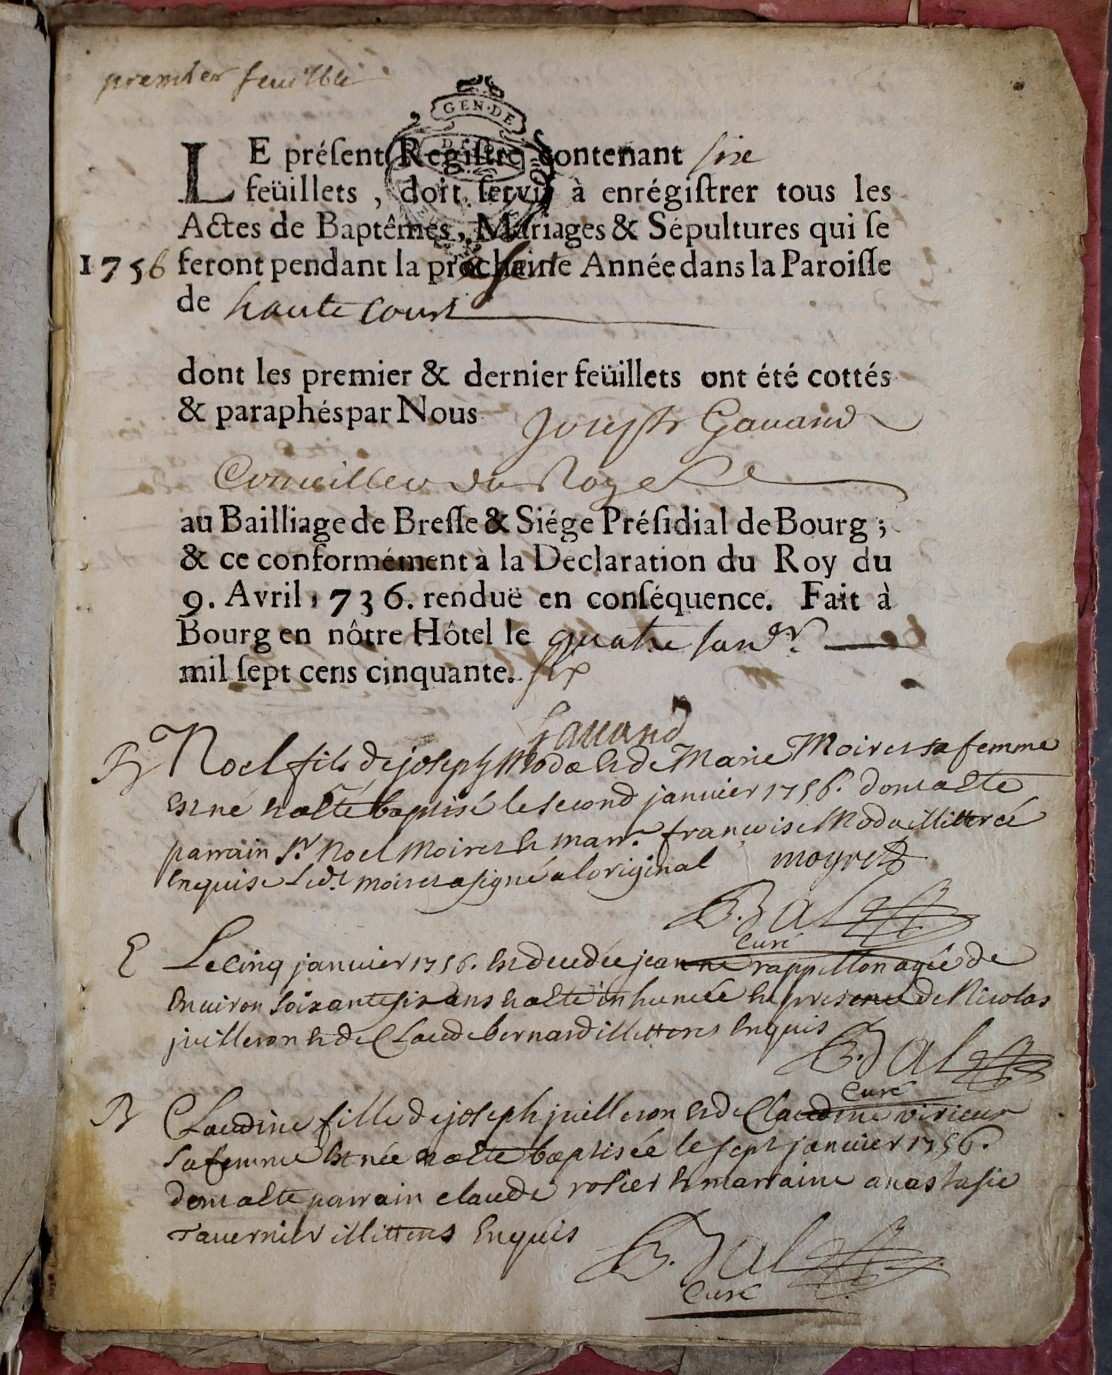 premier feuillet
GEN·DE
LE préſent Regiſtre contenant six
feüillets, doit ſervir à enrégiſtrer tous les
Actes de Baptêmes, Mariages & Sépultures qui ſe
1756 feront pendant la prochaine Année dans la Paroiſſe
de haute cour
dont les premier & dernier feüillets ont été cottés
& paraphés par Nous Joseph Gauand
Conseiller du Roy
au Bailliage de Breſſe & Siége Préſidial de Bourg;
& ce conformément à la Declaration du Roy du
9. Avril 1736. renduë en conſéquence. Fait à
Bourg en nôtre Hôtel le quatre janvr.
mil ſept cens cinquante. six
Gauand
B Noel fils de joseph Moda et de Marie Moiret sa femme
est né et a été baptisé le second janvier 1756. dont a été
parrain Sr. Noel Moiret et marr. françoise Moda illitterée
enquise led.t moiret a signé a loriginal moyret
B. Dal
Curé
E Le cinq janvier 1756. est decedée jeanne rappillon agée de
environ soixante six ans et a été inhumée en presence de Nicolas
juilleron et de Claude bernard illitteres enquis
B. Dal
Curé
B Claudine fille de joseph juilleron et de Claudine virieux
sa femme est née et a été baptisée le sept janvier 1756.
dont a été parrain claude rosier et marraine anastasie
Tavernier illitteres enquis
B. Dal
Curé